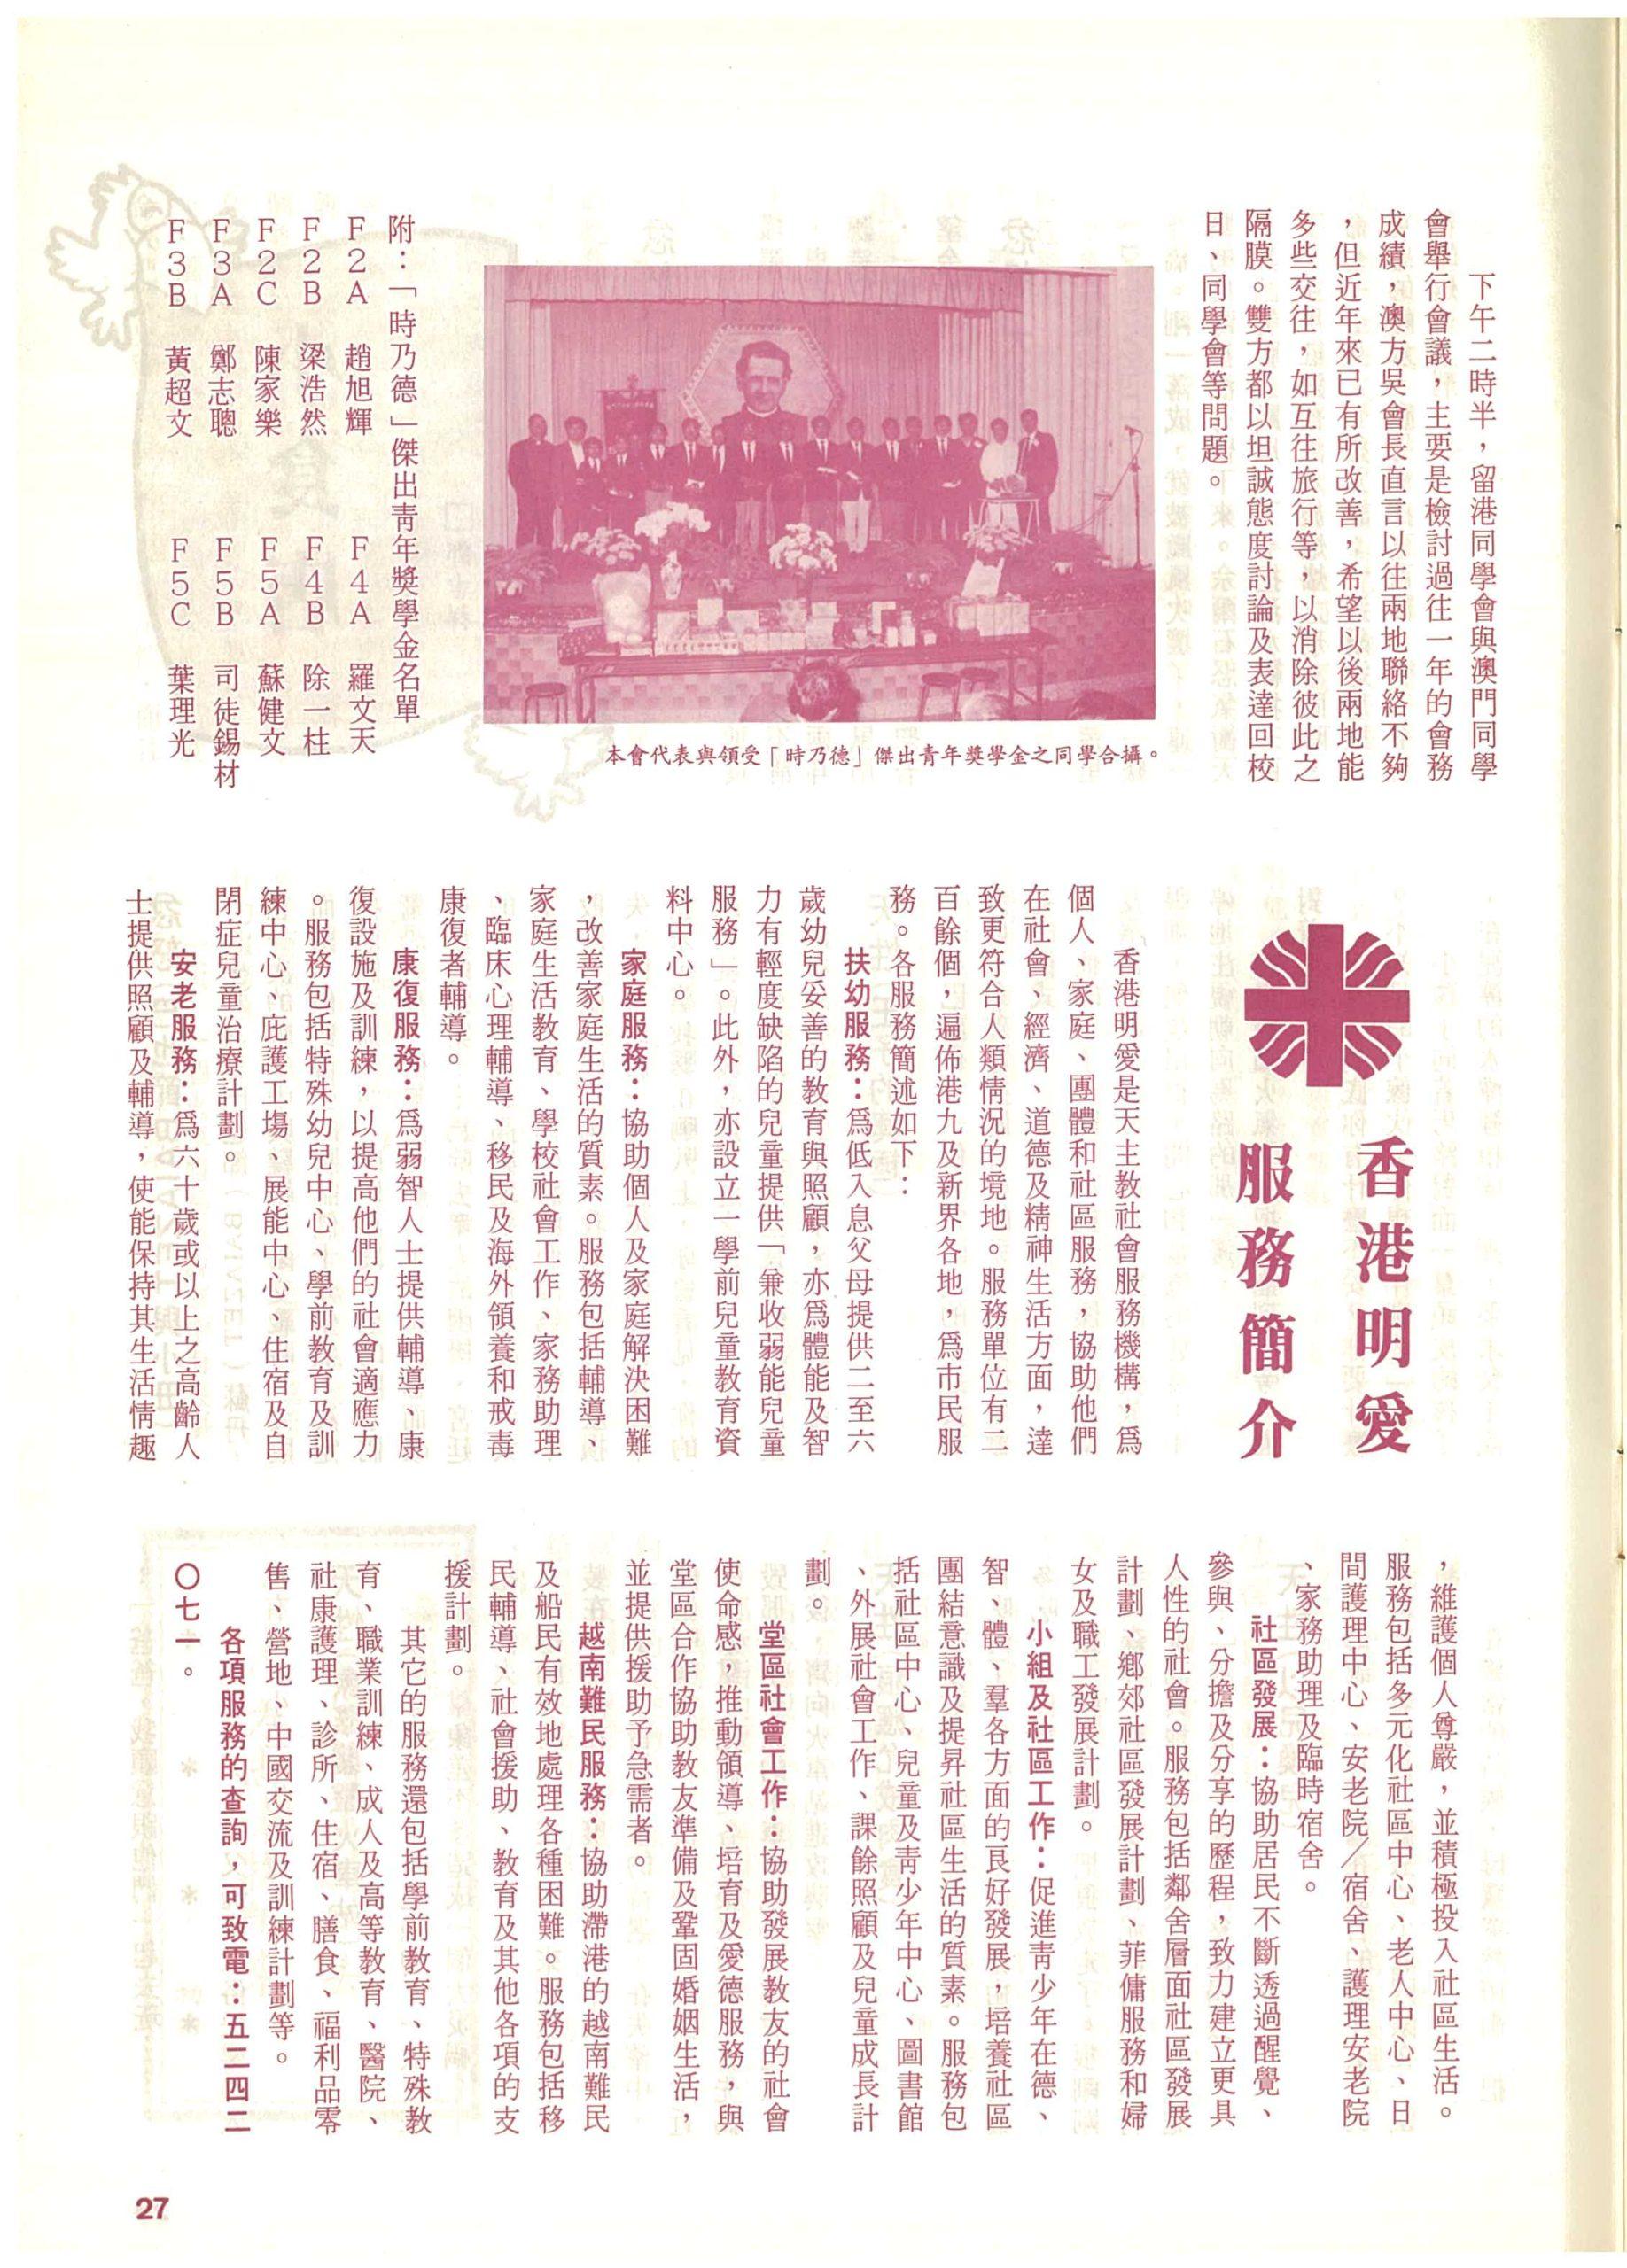 下午二時半，留港同學會與澳門同學
會舉行會議，主要是檢討過往一年的會務
成績，澳方吳會長直言以往兩地聯絡不夠
，但近年來已有所改善，希望以後兩地能
多些交往，如互往旅行等，以消除彼此之
隔膜。雙方都以坦誠態度討論及表達回校
日、同學會等問題。
本會代表與領受「時乃德」傑出青年獎學金之同學合攝。
附：「時乃德」傑出青年獎學金名單
F2A　趙旭輝　F4A　羅文天
F2B　梁浩然　F4B　除一柱
F2C　陳家樂　F5A　蘇健文
F3A　鄭志聰　F5B　司徒錫材
F3B　黃超文　F5C　葉理光
香港明愛
服務簡介
香港明愛是天主教社會服務機構，爲
個人、家庭、團體和社區服務，協助他們
在社會、經濟、道德及精神生活方面，達
致更符合人類情況的境地。服務單位有二
百餘個，遍佈港九及新界各地，爲市民服
務。各服務簡述如下：
扶幼服務：爲低入息父母提供二至六
歲幼兒妥善的教育與照顧，亦爲體能及智
力有輕度缺陷的兒童提供「兼收弱能兒童
服務」。此外，亦設立一學前兒童教育資
料中心。
家庭服務：協助個人及家庭解決困難
，改善家庭生活的質素。服務包括輔導、
家庭生活教育、學校社會工作、家務助理
、臨床心理輔導、移民及海外領養和戒毒
康復者輔導。
康復服務：爲弱智人士提供輔導、康
復設施及訓練，以提高他們的社會適應力
。服務包括特殊幼兒中心、學前教育及訓
練中心、庇護工場、展能中心、住宿及自
閉症兒童治療計劃。
安老服務：爲六十歲或以上之高齡人
士提供照顧及輔導，使能保持其生活情趣
，維護個人尊嚴，並積極投入社區生活。
服務包括多元化社區中心、老人中心、日
間護理中心、安老院／宿舍、護理安老院
、家務助理及臨時宿舍。
社區發展：協助居民不斷透過醒覺、
參與、分擔及分享的歷程，致力建立更具
人性的社會。服務包括鄰舍層面社區發展
計劃、鄉郊社區發展計劃、菲傭服務和婦
女及職工發展計劃。
小組及社區工作：促進青少年在德、
智、體、羣各方面的良好發展，培養社區
團結意識及提昇社區生活的質素。服務包
括社區中心、兒童及青少年中心、圖書館
、外展社會工作、課餘照顧及兒童成長計
劃。
堂區社會工作：協助發展教友的社會
使命感，推動領導、培育及愛德服務，與
堂區合作協助教友準備及鞏固婚姻生活，
並提供援助予急需者。
越南難民服務：協助滯港的越南難民
及船民有效地處理各種困難。服務包括移
民輔導、社會援助、教育及其他各項的支
援計劃。
其它的服務還包括學前教育、特殊教
育、職業訓練、成人及高等教育、醫院、
社康護理、診所、住宿、膳食、福利品零
售、營地、中國交流及訓練計劃等。
各項服務的查詢，可致電：五二四二
〇七一。
＊　＊　＊
27